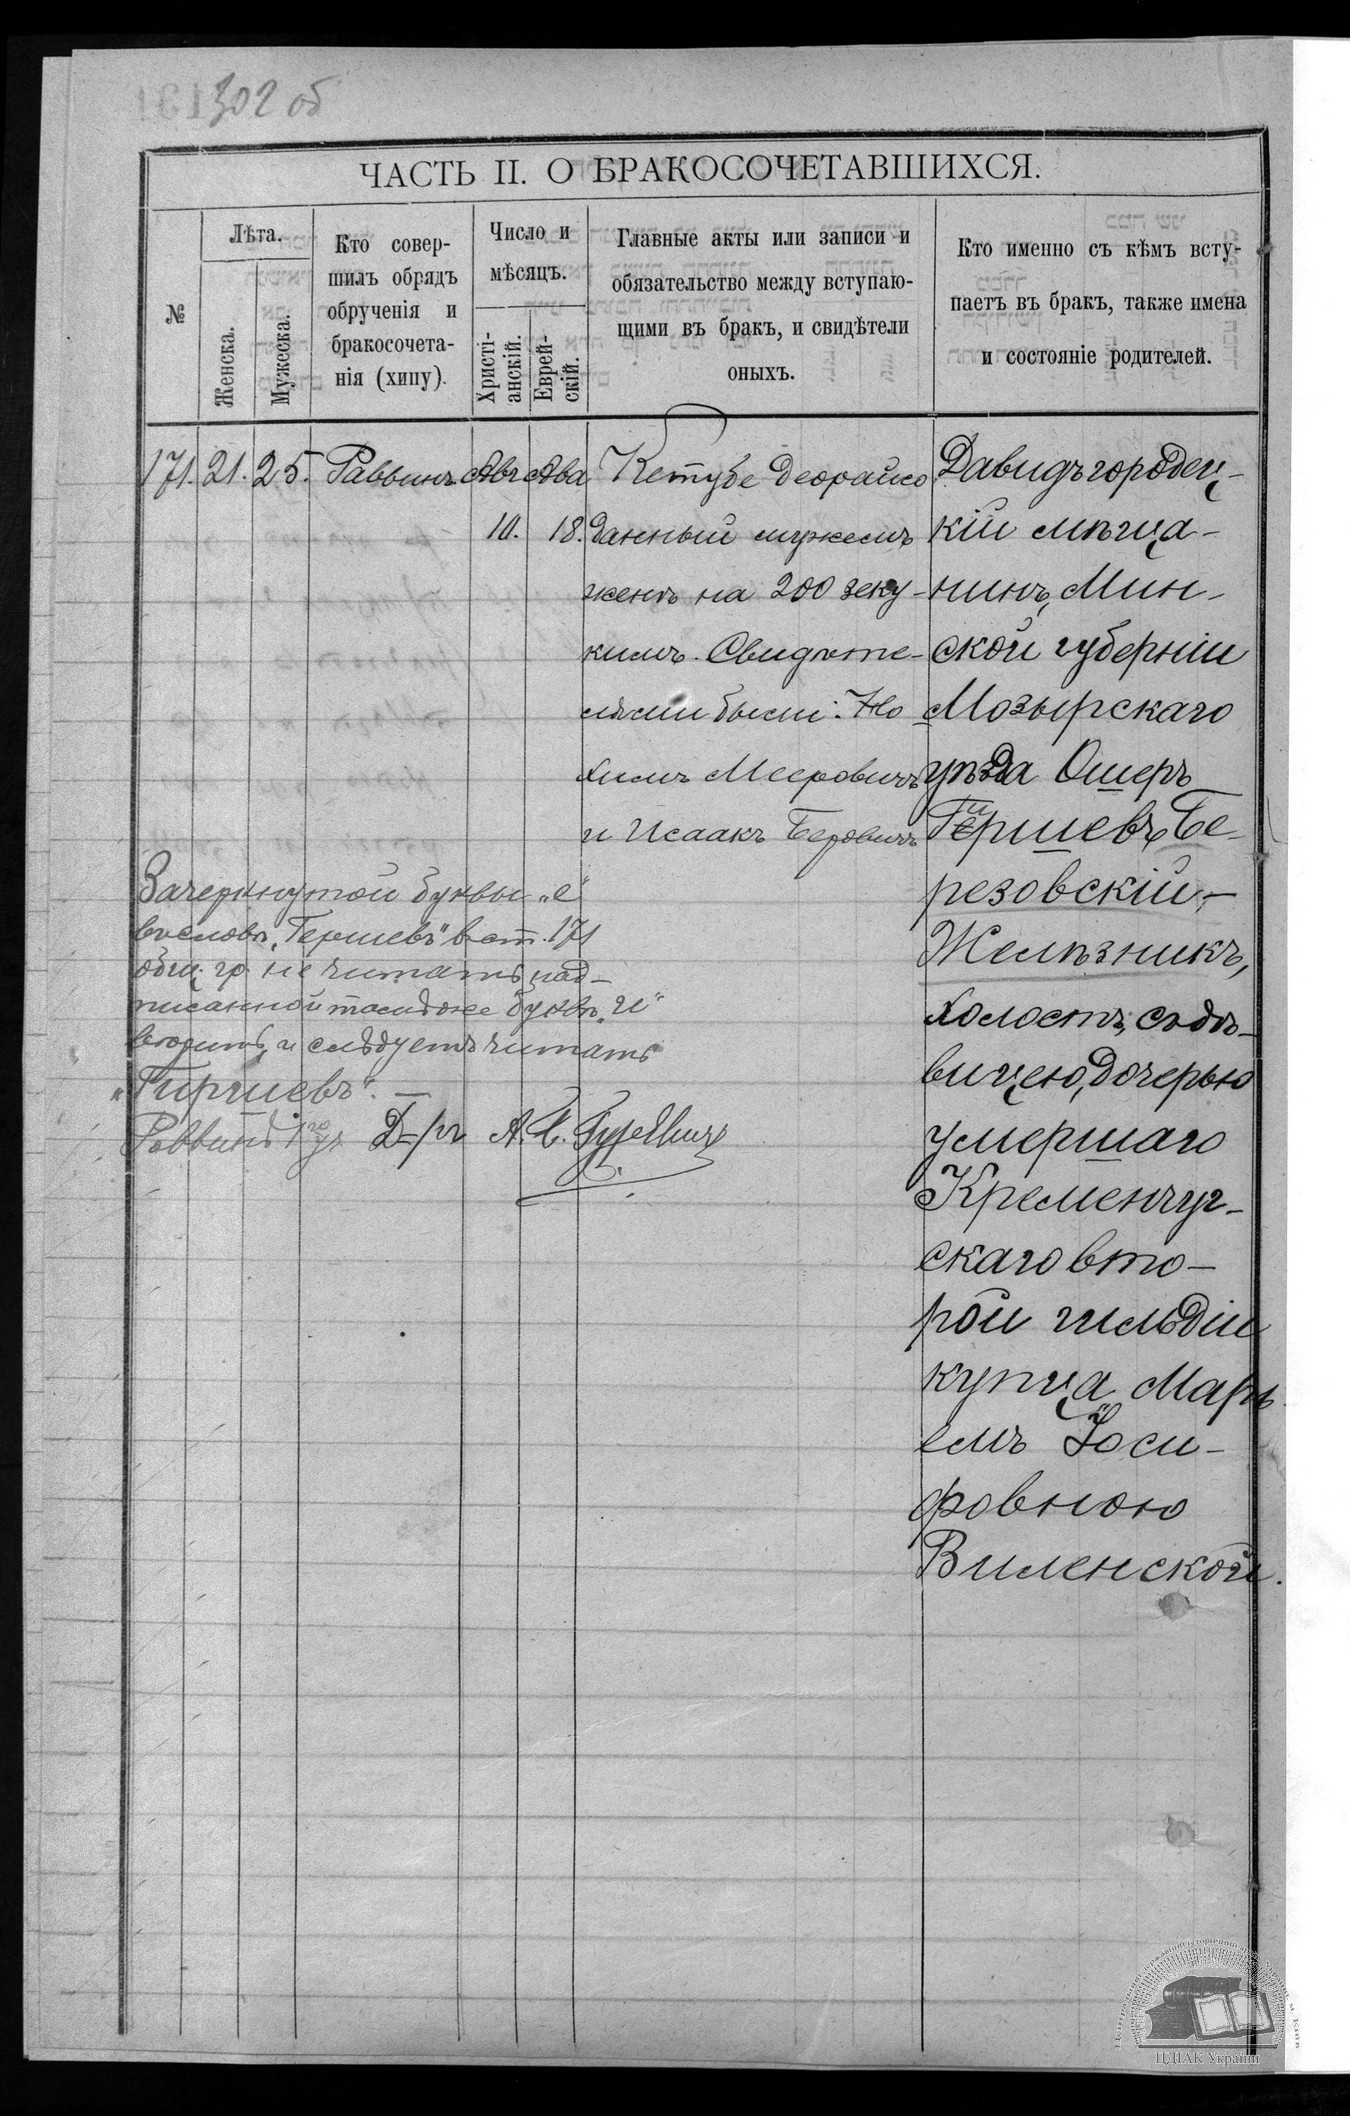 302 об
ЧАСТЬ II. О БРАКОСОЧЕТАВШИХСЯ.
№
Лѣта.
Женска.
Мужеска.
Кто совер-
шилъ обрядъ
обрученія и
бракосочета-
нія (хипу).
Число и
мѣсяцъ.
Христі-
анскій.
Еврей-
скій.
Главные акты или записи и
обязательство между вступаю-
щими въ бракъ, и свидѣтели
оныхъ.
Кто именно съ кѣмъ всту-
паетъ въ бракъ, также имена
и состояніе родителей.
171. 21. 25. Раввинъ Авг 10. Ава 18.
Кетубе деорайсо
данный мужемъ
женѣ на 200 зеку-
кимъ. Свидѣте-
лями были: Но
химъ Мееровичъ
и Исаакъ Беровичъ
Давидъгородец-
кій мѣща-
нинъ, Мин-
ской губерніи
Мозырскаго
уѣзда Ошеръ
и
Гершевъ Бе-
резовскій-
Желѣзникъ,
холостъ, съ дѣ-
вицею, дочерью
умершаго
Кременчуг-
скаго вто-
рой гильдіи
купца Марь
емъ Іоси-
фовною
Виленской.
Зачеркнутой буквы „е“
въ словѣ „Гершевъ“ в ст. 171
общ. гр. не читать, над-
писанной тамъ же буквѣ „и“
вѣрить, и слѣдуетъ читать
„Гиршевъ“. —
Раввинъ Д-ръ
ЦДІАК України